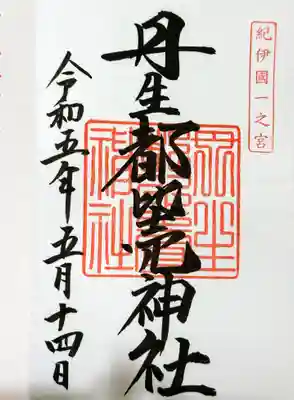 紀伊國一之宮
丹生都比売神社
令和五年五月十四日